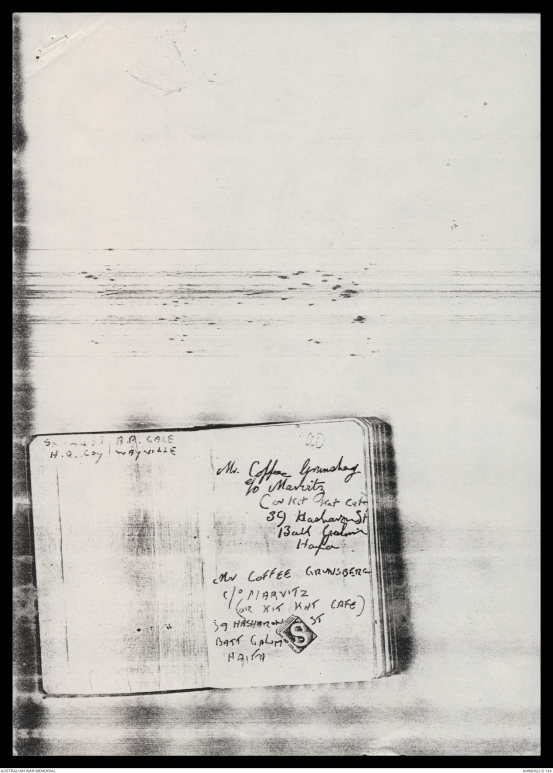 A.A. GAGE
H.Q. Coy WAYVILLE
20
Mr. Coffee Grunsberg
c/o Marvitz
(or Kit Kat Cafe
39 Hasharon St
Batt Galim
Haifa
Mr COFFEE GRUNSBERG
c/o MARVITZ
(OR KIT KAT CAFE)
39 HASHARON ST
BATT GALIM
HAIFA
S
AUSTRALIAN WAR MEMORIAL